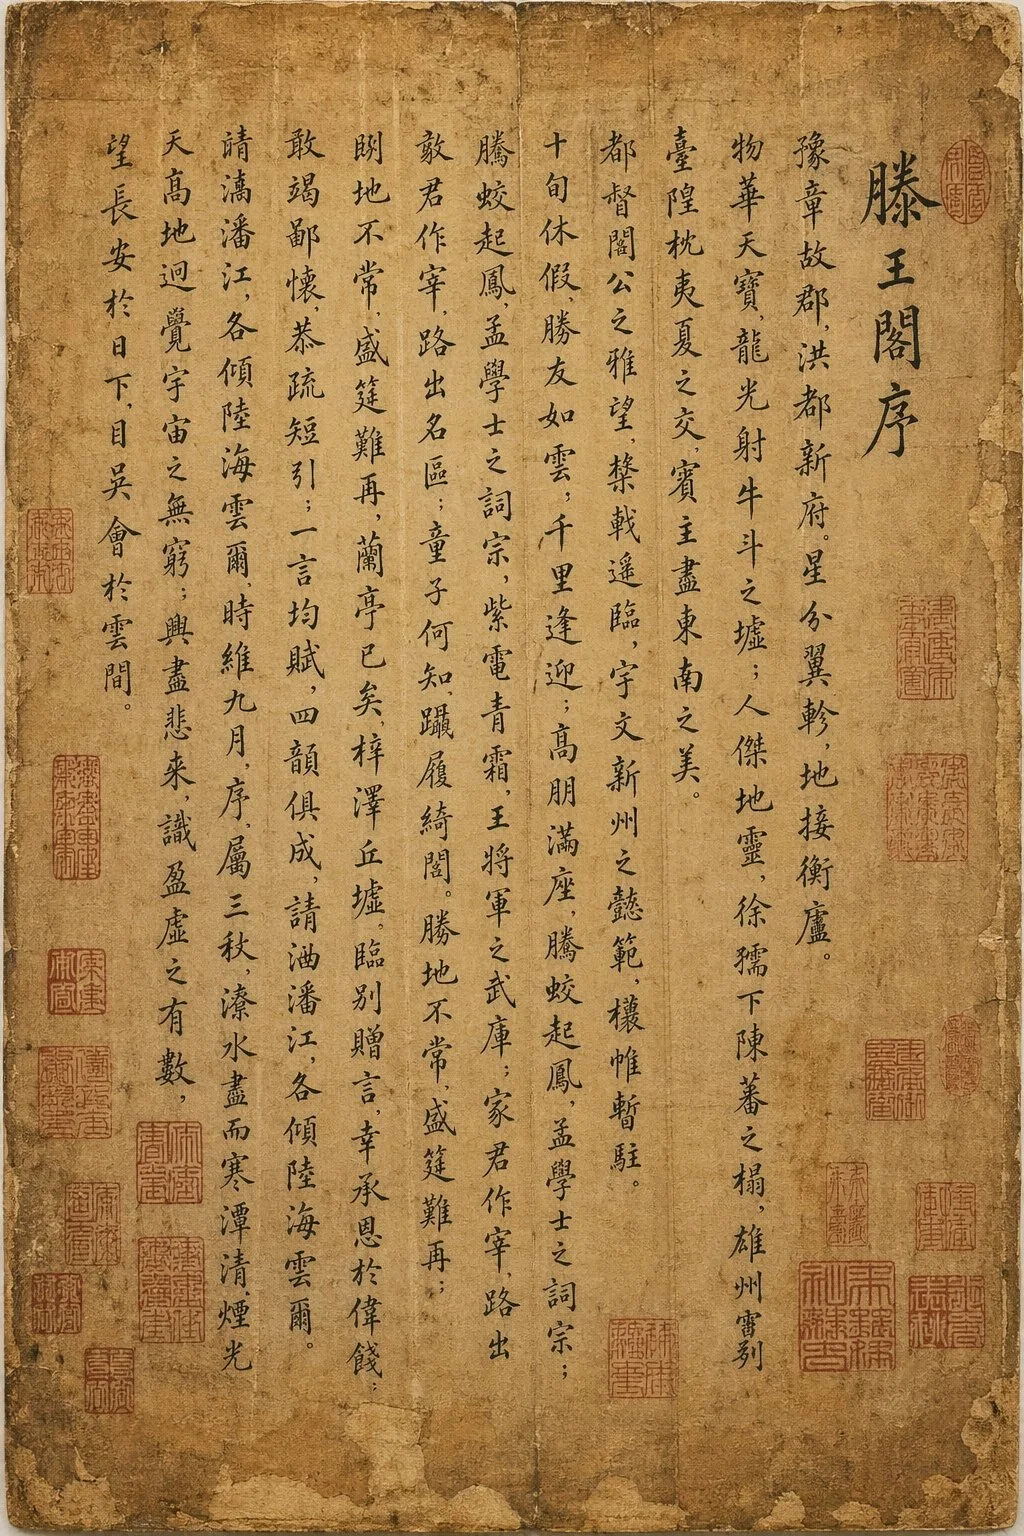 滕王閣序
豫章故郡，洪都新府。星分翼軫，地接衡廬。
物華天寶，龍光射牛斗之墟；人傑地靈，徐孺下陳蕃之榻，雄州
臺隍枕夷夏之交，賓主盡東南之美。
都督閣公之雅望，棨戟遥臨，宇文新州之懿範，櫰帷暫駐。
十旬休假，勝友如雲，千里逢迎；高朋滿座，騰蛟起鳳，孟學士之詞宗；
騰蛟起鳳，孟學士之詞宗，紫電青霜，王將軍之武庫；家君作宰，路出
敥君作宰，路出名區；童子何知，躡履綺閣。勝地不常，盛筵難再；
地不常，盛筵難再，蘭亭已矣，梓澤丘墟。臨別贈言，幸承恩於偉餞；
敢竭鄙懷，恭疏短引；一言均賦，四韻俱成，請洒潘江，各傾陸海雲爾。
請潘江，各傾陸海雲爾，時維九月，序，屬三秋，潦水盡而寒潭清，煙光
天高地迥覺宇宙之無窮；興盡悲来，識盈虛之有數，
望長安於日下，目吳會於雲間。